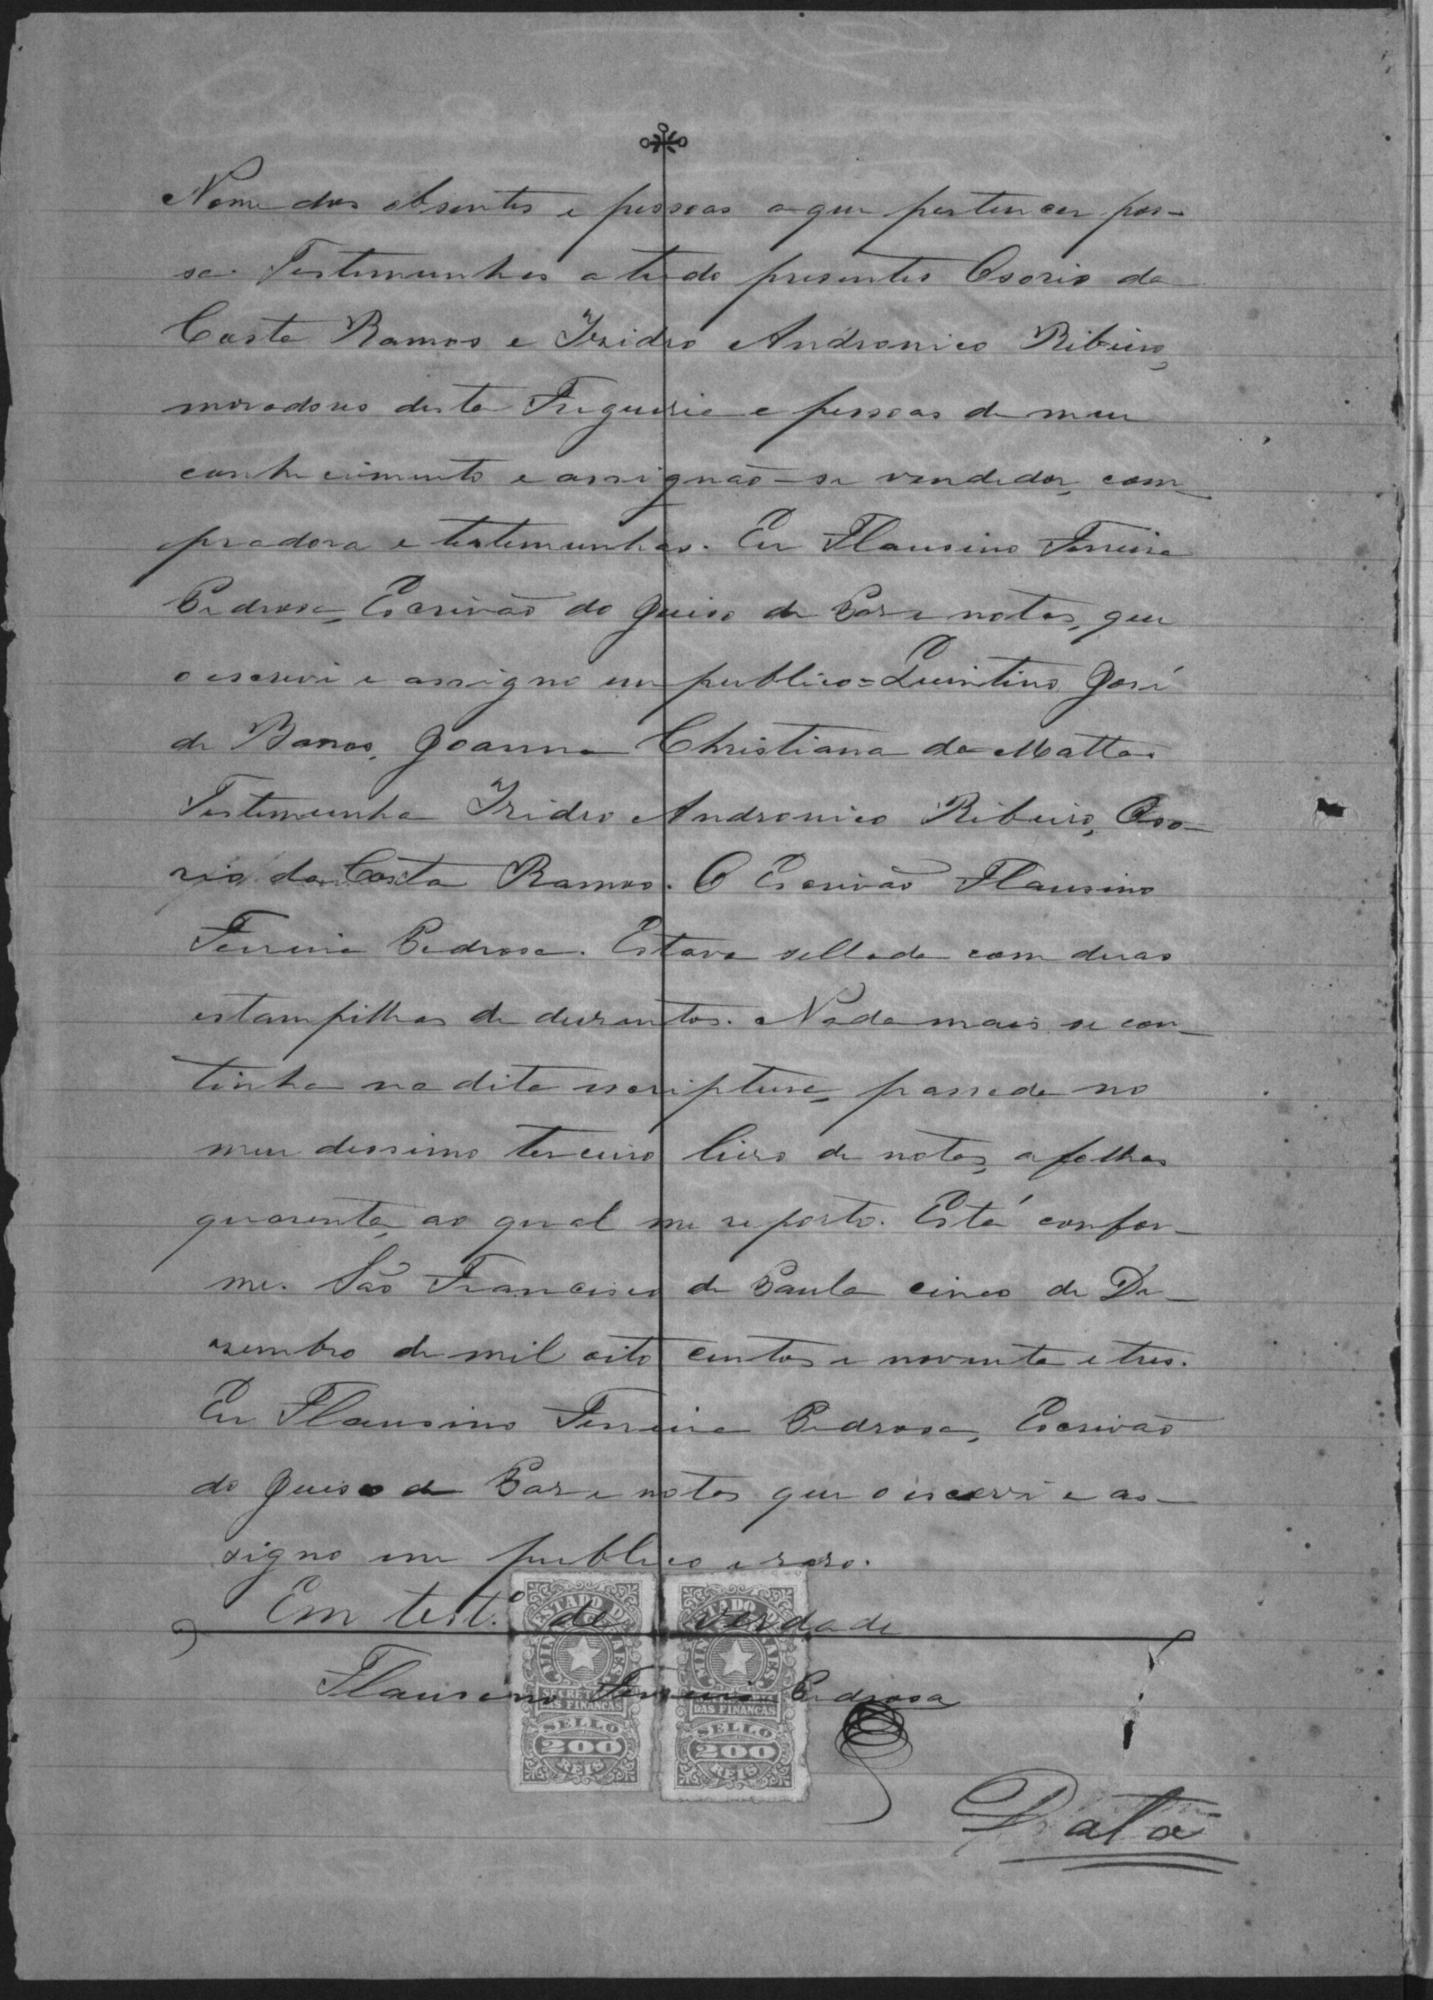 Nome dos absentes e pessoas a que pertencer pos-
sa. Testemunhas a tudo presentes Osorio da
Costa Ramos e Izidro Andronico Ribeiro,
moradores desta Freguesia e pessoas de meu
conhecimento e assignão-se vendedor, com-
pradora e testemunhas. Eu Flausino Ferreira
Pedrosa, Escrivão do Juiso de Paz e notas, que
o escrevi e assigno em publico = Quintino José
de Barros, Joanna Christiana da Matta.
Testemunha Izidro Andronico Ribeiro, Oso-
rio da Costa Ramos. O Escrivão Flausino
Ferreira Pedrosa. Estava sellada com duas
estampilhas de duzentos. Nada mais se con-
tinha na dita escriptura, passada no
meu dessimo terceiro livro de notas, a folhas
quarenta, ao qual me reporto. Está confor-
me. São Francisco de Paula cinco de De-
zembro de mil oito centos e noventa e tres.
Eu Flausino Ferreira Pedrosa, Escrivão
do Juiso de Paz e notas que o escrevi e as-
signo em publico e raso.
Em test.º de verdade
Flausino Ferreira Pedrosa
ESTADO DE MINAS GERAES
SECRETARIA DAS FINANÇAS
SELLO
200
REIS
ESTADO DE MINAS GERAES
SECRETARIA DAS FINANÇAS
SELLO
200
REIS
Data